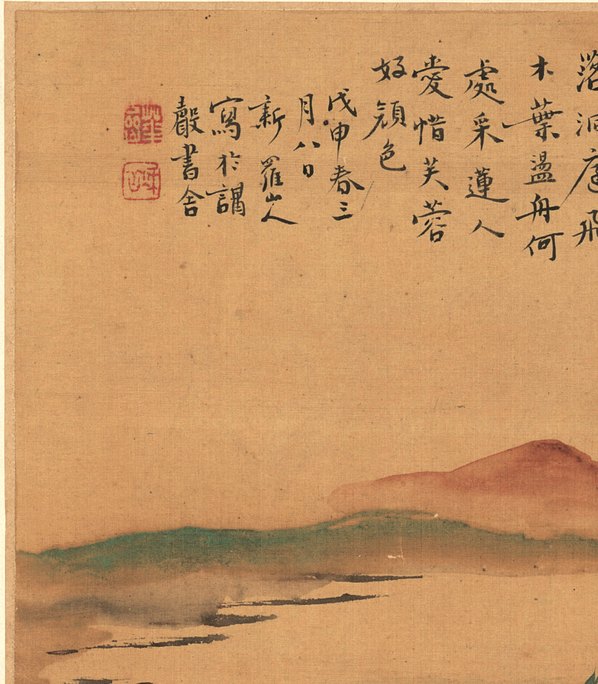 落洞庭飛
木葉盪舟何
處采蓮人
愛惜芙蓉
好顔色
戊申春三
月八日
新羅山人
寫於
書舍